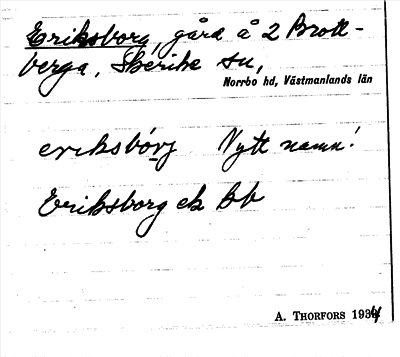 Eriksborg, gård å 2 Brott-
berga, Skerike sn,
Norrbo hd, Västmanlands län
eriksbórj Nytt namn!
Eriksborg ek bb
A. THORFORS 1934